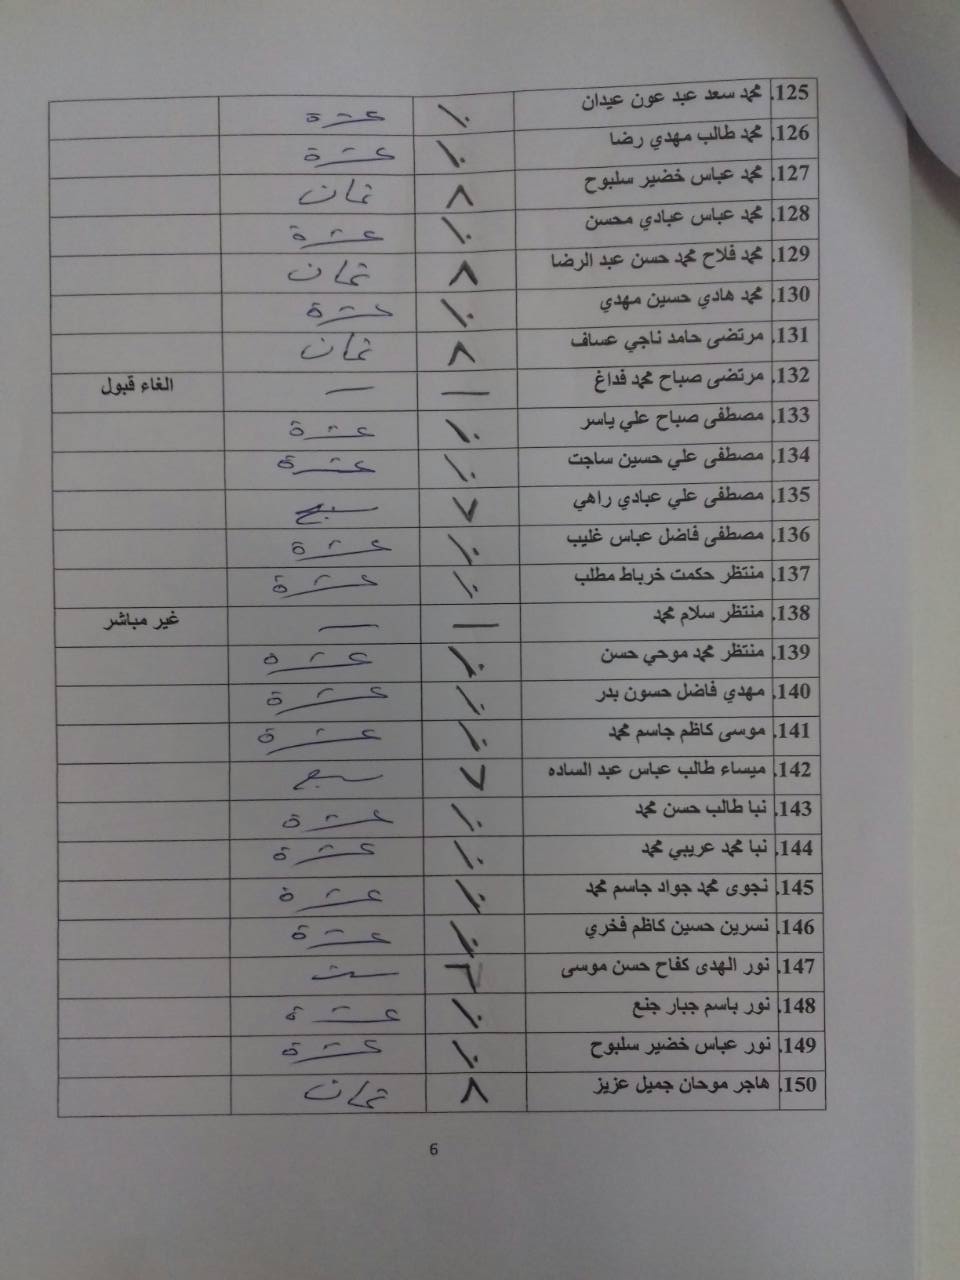 125. محمد سعد عبد عون عيدان ١٠ عشرة
126. محمد طالب مهدي رضا ١٠ عشرة
127. محمد عباس خضير سلبوح ٨ ثمان
128. محمد عباس عبادي محسن ١٠ عشرة
129. محمد فلاح محمد حسن عبد الرضا ٨ ثمان
130. محمد هادي حسين مهدي ١٠ عشرة
131. مرتضى حامد ناجي عساف ٨ ثمان
132. مرتضى صباح محمد فداغ — — الغاء قبول
133. مصطفى صباح علي ياسر ١٠ عشرة
134. مصطفى علي حسين ساجت ١٠ عشرة
135. مصطفى علي عبادي راهي ٧ سبع
136. مصطفى فاضل عباس غليب ١٠ عشرة
137. منتظر حكمت خرباط مطلب ١٠ عشرة
138. منتظر سلام محمد — — غير مباشر
139. منتظر محمد موحي حسن ١٠ عشرة
140. مهدي فاضل حسون بدر ١٠ عشرة
141. موسى كاظم جاسم محمد ١٠ عشرة
142. ميساء طالب عباس عبد الساده ٧ سبع
143. نبا طالب حسن محمد ١٠ عشرة
144. نبا محمد عريبي محمد ١٠ عشرة
145. نجوى محمد جواد جاسم محمد ١٠ عشرة
146. نسرين حسين كاظم فخري ١٠ عشرة
147. نور الهدى كفاح حسن موسى ٦ ست
148. نور باسم جبار جنع ١٠ عشرة
149. نور عباس خضير سلبوح ١٠ عشرة
150. هاجر موحان جميل عزيز ٨ ثمان
6